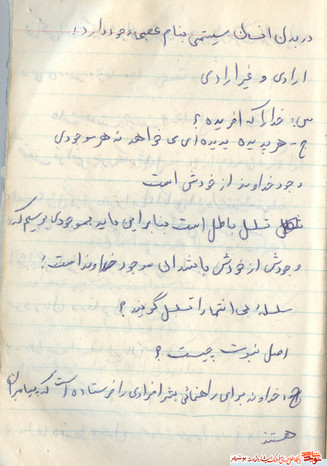 در بدن انسان سیستمی بنام عصبی وجود دارد:
ارادی و غیر ارادی
س: خدا را که آفریده؟
ج - هر پدیده پدیده ای می خواهد نه هر موجودی
وجود خداوند از خودش است
تسلسل باطل است بنابراین باید بموجودی برسیم که
وجودش از خودش باشد این موجود خداوند است؛
سلسله بی انتها را تسلسل گویند؟
اصل نبوت چیست؟
ج: خداوند برای راهنمائی بشر افرادی را فرستاده است که پیامبران
هستند